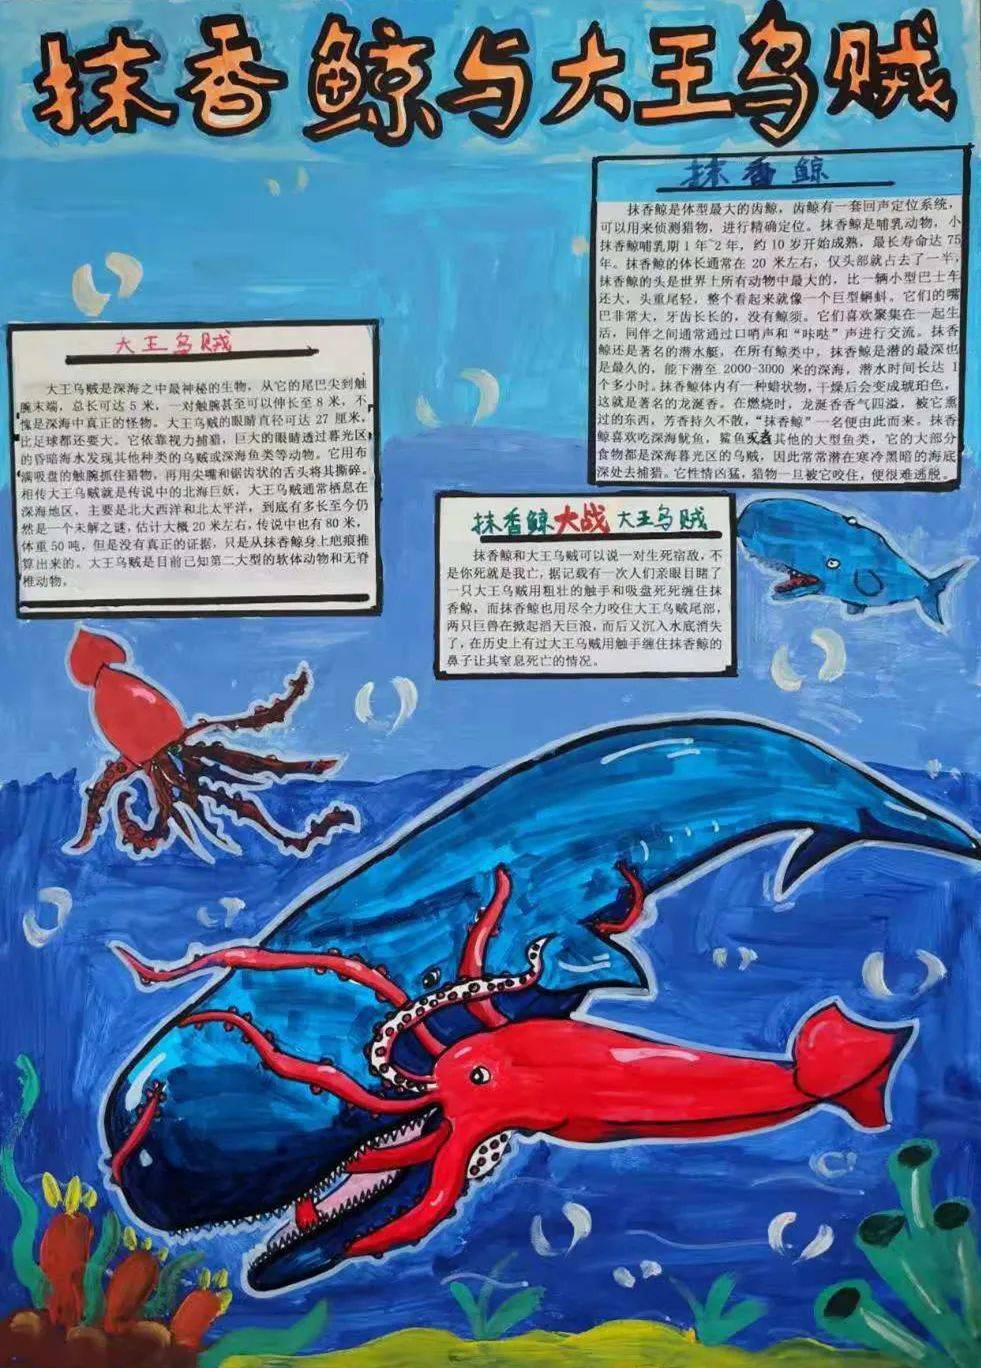 抹香鲸与大王乌贼
抹香鲸
抹香鲸是体型最大的齿鲸，齿鲸有一套回声定位系统，
可以用来侦测猎物，进行精确定位。抹香鲸是哺乳动物，小
抹香鲸哺乳期1年~2年，约10岁开始成熟，最长寿命达75
年。抹香鲸的体长通常在20米左右，仅头部就占去了一半，
抹香鲸的头是世界上所有动物中最大的，比一辆小型巴士车
还大，头重尾轻，整个看起来就像一个巨型蝌蚪。它们的嘴
巴非常大，牙齿长长的，没有鲸须。它们喜欢聚集在一起生
活，同伴之间通常通过口哨声和“咔哒”声进行交流。抹香
鲸还是著名的潜水艇，在所有鲸类中，抹香鲸是潜的最深也
是最久的，能下潜至2000-3000米的深海，潜水时间长达1
个多小时。抹香鲸体内有一种蜡状物，干燥后会变成琥珀色，
这就是著名的龙涎香。在燃烧时，龙涎香香气四溢，被它熏
过的东西，芳香持久不散，“抹香鲸”一名便由此而来。抹香
鲸喜欢吃深海鱿鱼，鲨鱼或者其他的大型鱼类，它的大部分
食物都是深海暮光区的乌贼，因此常常潜在寒冷黑暗的海底
深处去捕猎。它性情凶猛，猎物一旦被它咬住，便很难逃脱。
大王乌贼
大王乌贼是深海之中最神秘的生物，从它的尾巴尖到触
腕末端，总长可达5米，一对触腕甚至可以伸长至8米，不
愧是深海中真正的怪物。大王乌贼的眼睛直径可达27厘米，
比足球都还要大。它依靠视力捕猎，巨大的眼睛透过暮光区
的昏暗海水发现其他种类的乌贼或深海鱼类等动物。它用布
满吸盘的触腕抓住猎物，再用尖嘴和锯齿状的舌头将其撕碎。
相传大王乌贼就是传说中的北海巨妖，大王乌贼通常栖息在
深海地区，主要是北大西洋和北太平洋，到底有多长至今仍
然是一个未解之谜，估计大概20米左右，传说中也有80米，
体重50吨，但是没有真正的证据，只是从抹香鲸身上疤痕推
算出来的。大王乌贼是目前已知第二大型的软体动物和无脊
椎动物。
抹香鲸大战大王乌贼
抹香鲸和大王乌贼可以说一对生死宿敌，不
是你死就是我亡，据记载有一次人们亲眼目睹了
一只大王乌贼用粗壮的触手和吸盘死死缠住抹
香鲸，而抹香鲸也用尽全力咬住大王乌贼尾部，
两只巨兽在掀起滔天巨浪，而后又沉入水底消失
了，在历史上有过大王乌贼用触手缠住抹香鲸的
鼻子让其窒息死亡的情况。